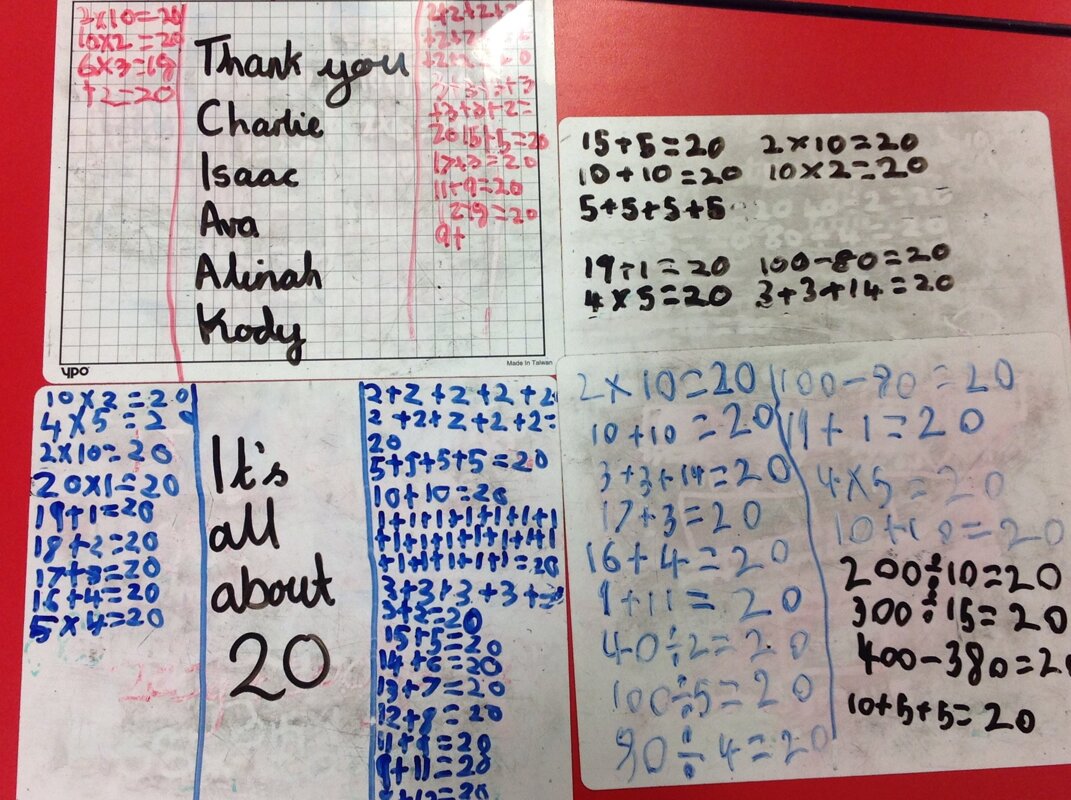 2×10=20
10×2=20
6×3=18
+2=20
Thank you
Charlie
Isaac
Ava
Alinah
Kody
2+2+2+2
+2+2
+2+2
3+3+3+3
+3+3+2=
20 15+5=20
17+3=20
11+9=20
9+
ypo
Made in Taiwan
15+5=20 2×10=20
10+10=20 10×2=20
5+5+5+5
19+1=20 100-80=20
4×5=20 3+3+14=20
10×2=20
4×5=2
2×10=20
20×1=20
19+1=20
18+2=20
17+3=20
16+4=20
5×4=20
It's
all
about
20
2+2+2+2+2
2+2+2+2+2=
20
5+5+5+5=20
10+10=20
1+1+1+1+1+1+1
+1+1+1+1+1+1+1
+1+1+1+1+1+1=20
3+3+3+3+
3+2=20
15+5=20
14+6=20
13+7=20
12+8=20
11+9=20
9+11=20
8+12=20
2×10=20
10+10=20
3+3+14=20
17+3=20
16+4=20
9+11=20
40÷2=20
100÷5=20
÷4=20
100-80=20
19+1=20
4×5=20
=20
200÷10=20
300÷15=20
400-380=20
10+5+5=20